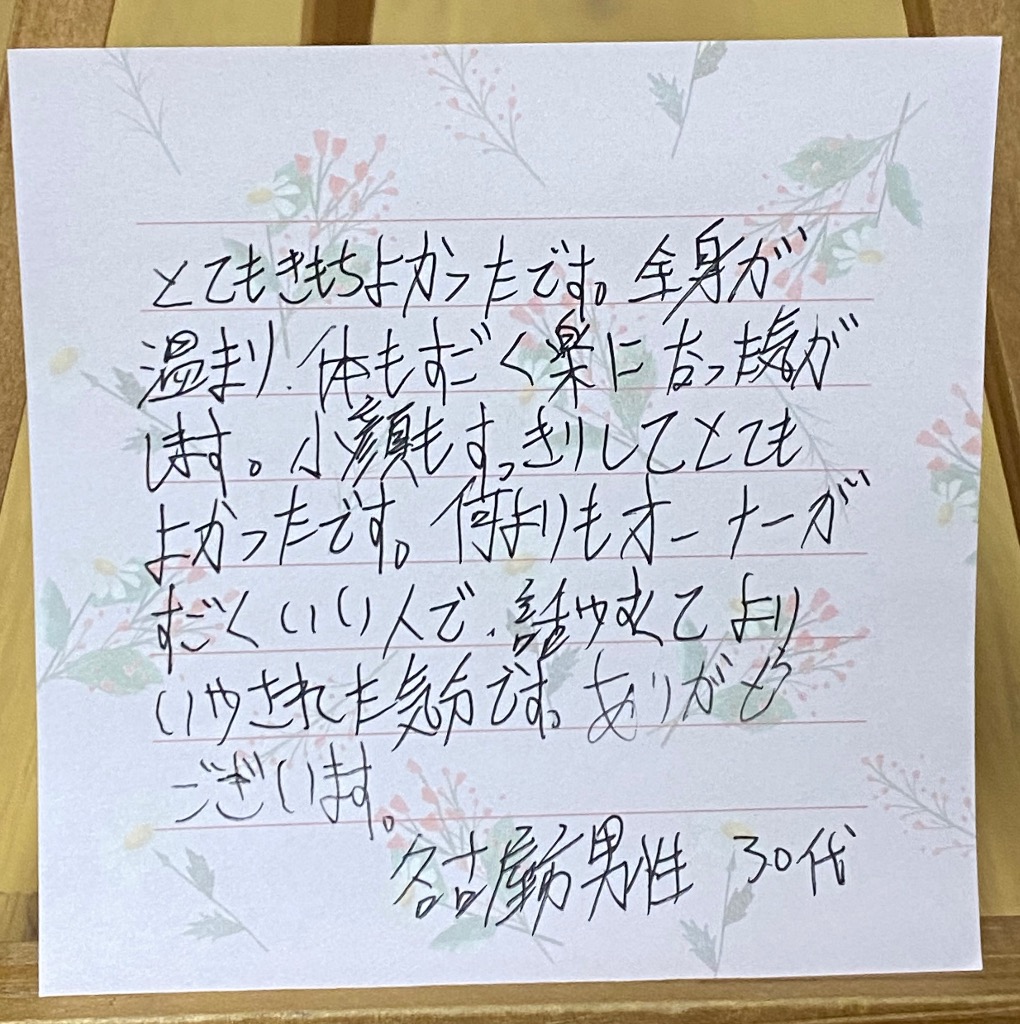 とてもきもちよかったです。全身が
温まり、体もすごく楽になった気が
します。小顔もすっきりしてとても
よかったです。何よりもオーナーが
すごくいい人で、話やすくてより
いやされた気分です。ありがとう
ございます。
名古屋市男性 30代